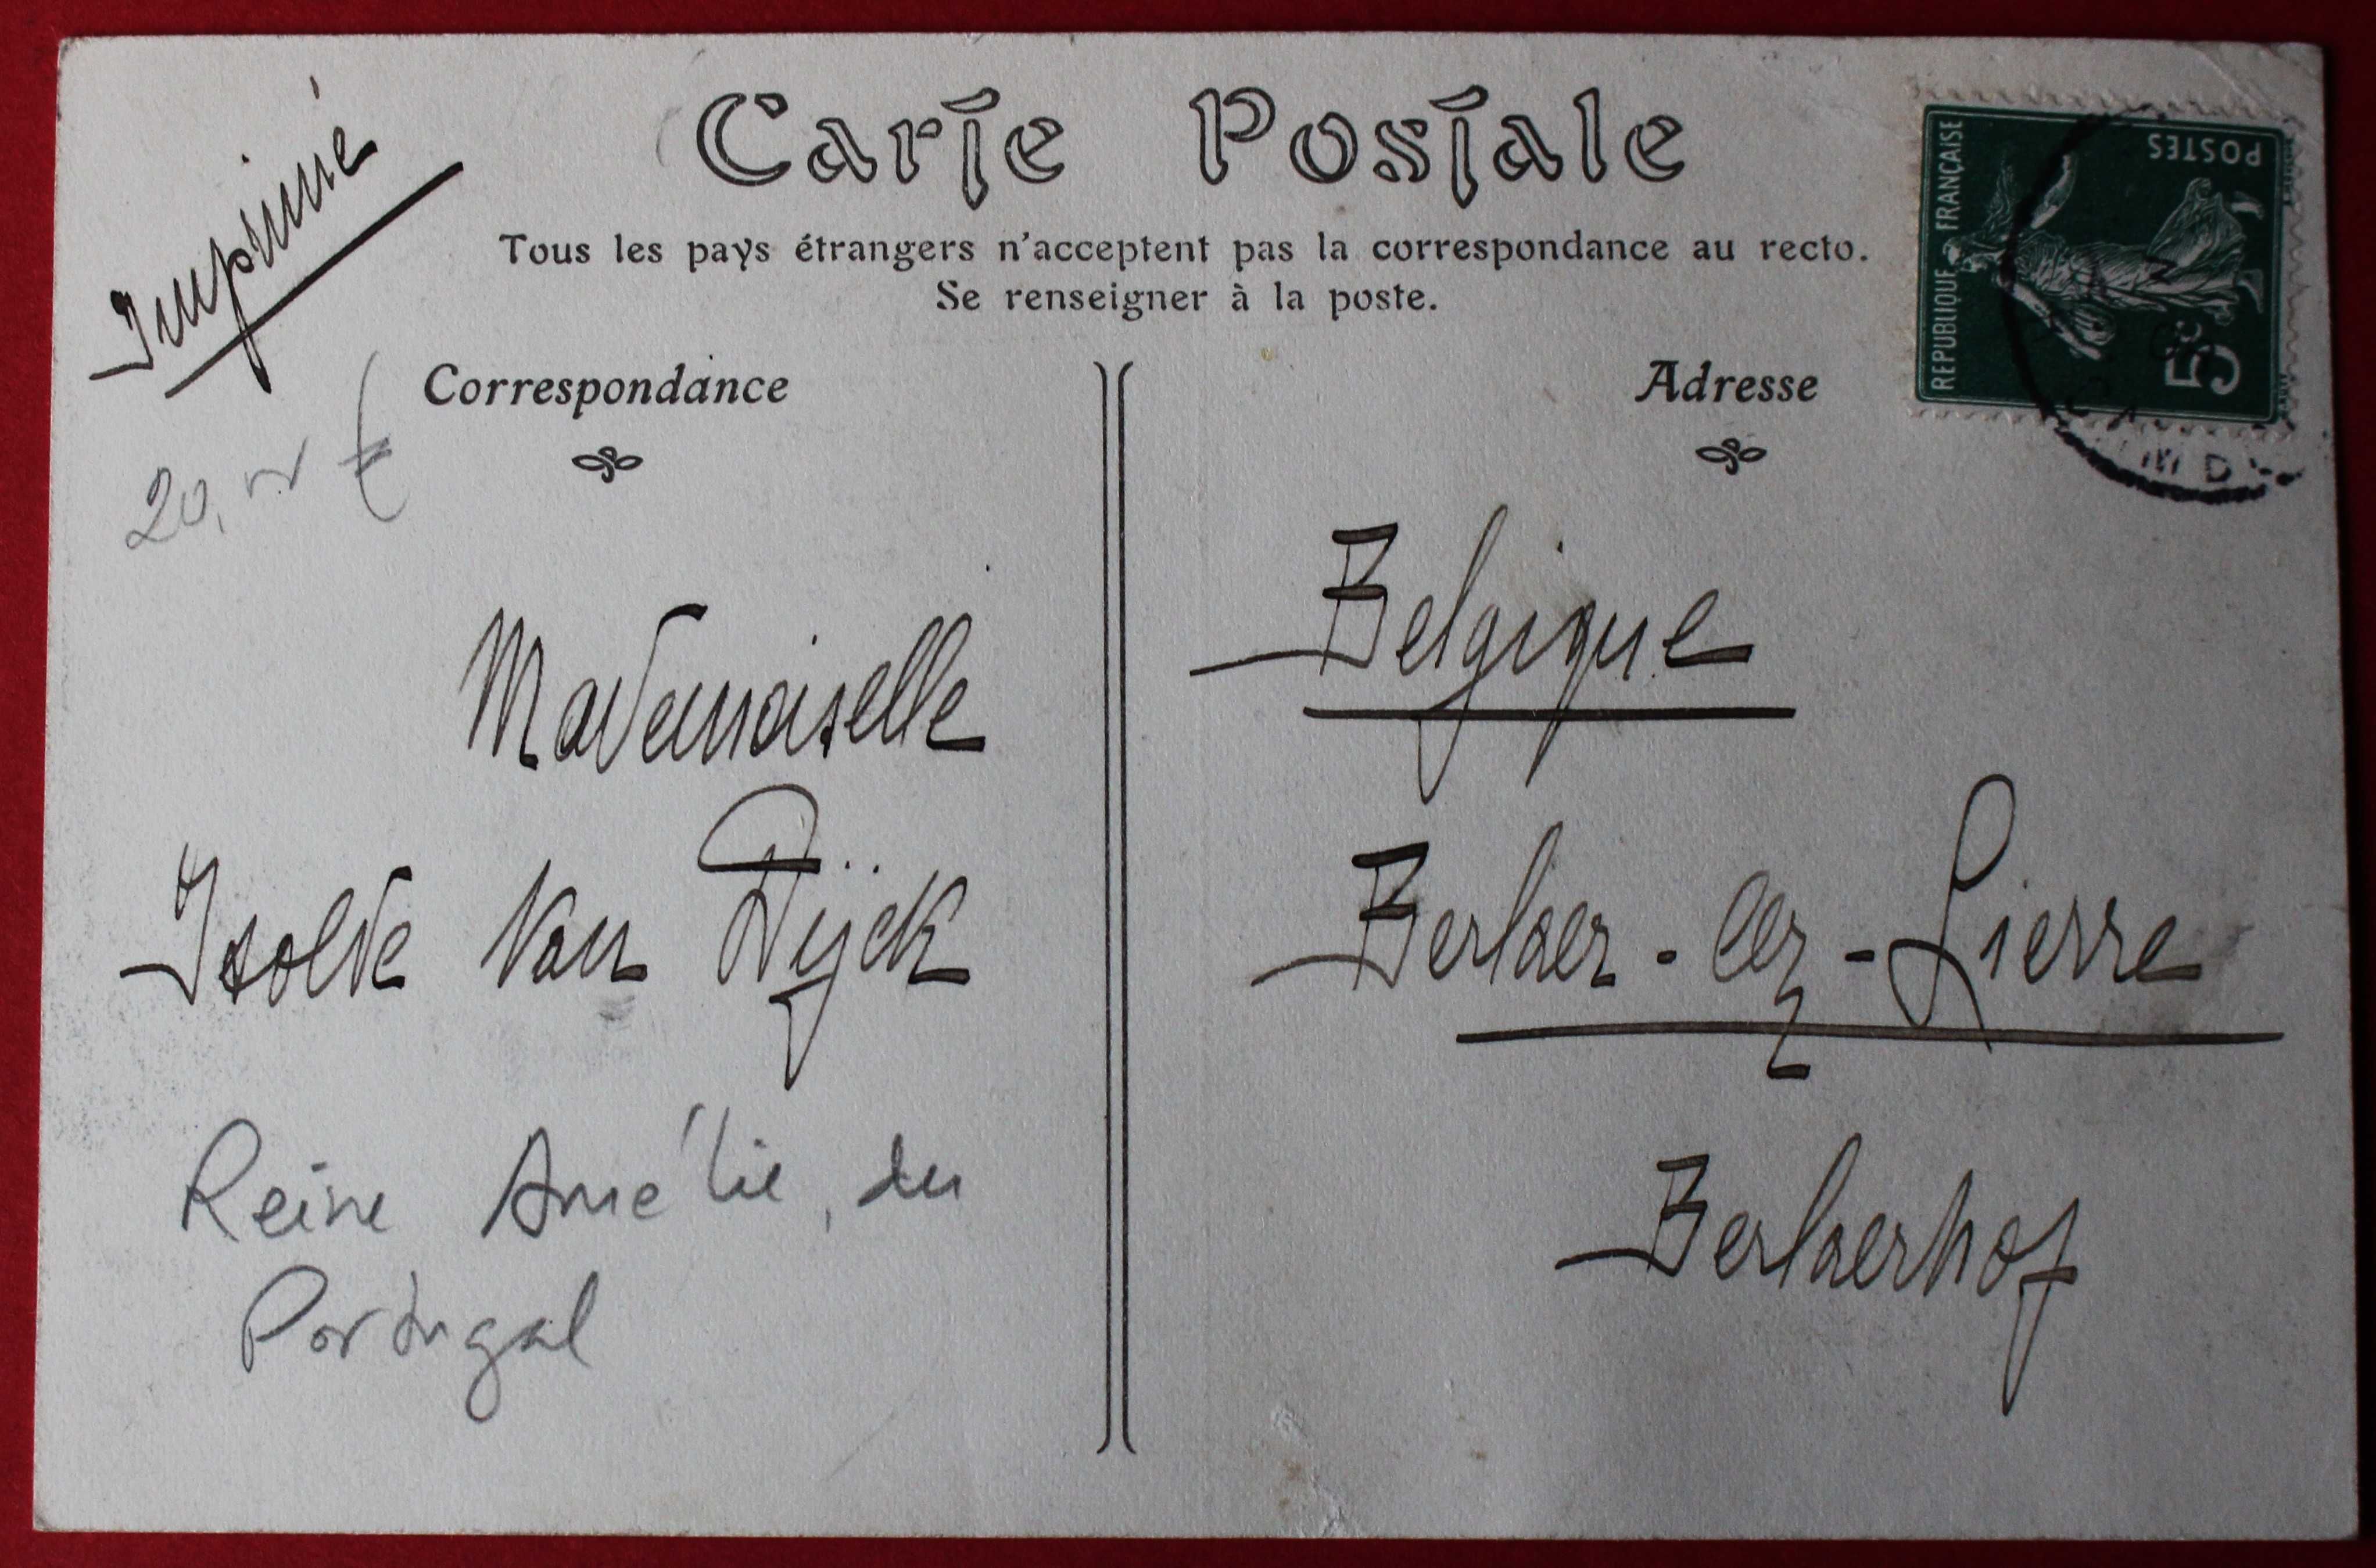 Imprimé
Carte Postale
Tous les pays étrangers n'acceptent pas la correspondance au recto.
Se renseigner à la poste.
REPUBLIQUE FRANÇAISE
POSTES
5c
Correspondance
20,
Mademoiselle
Isolde Van Dÿck
Reine Amélie, du
Portugal
Adresse
Belgique
Berlaer-lez-Lierre
Berlaerhof